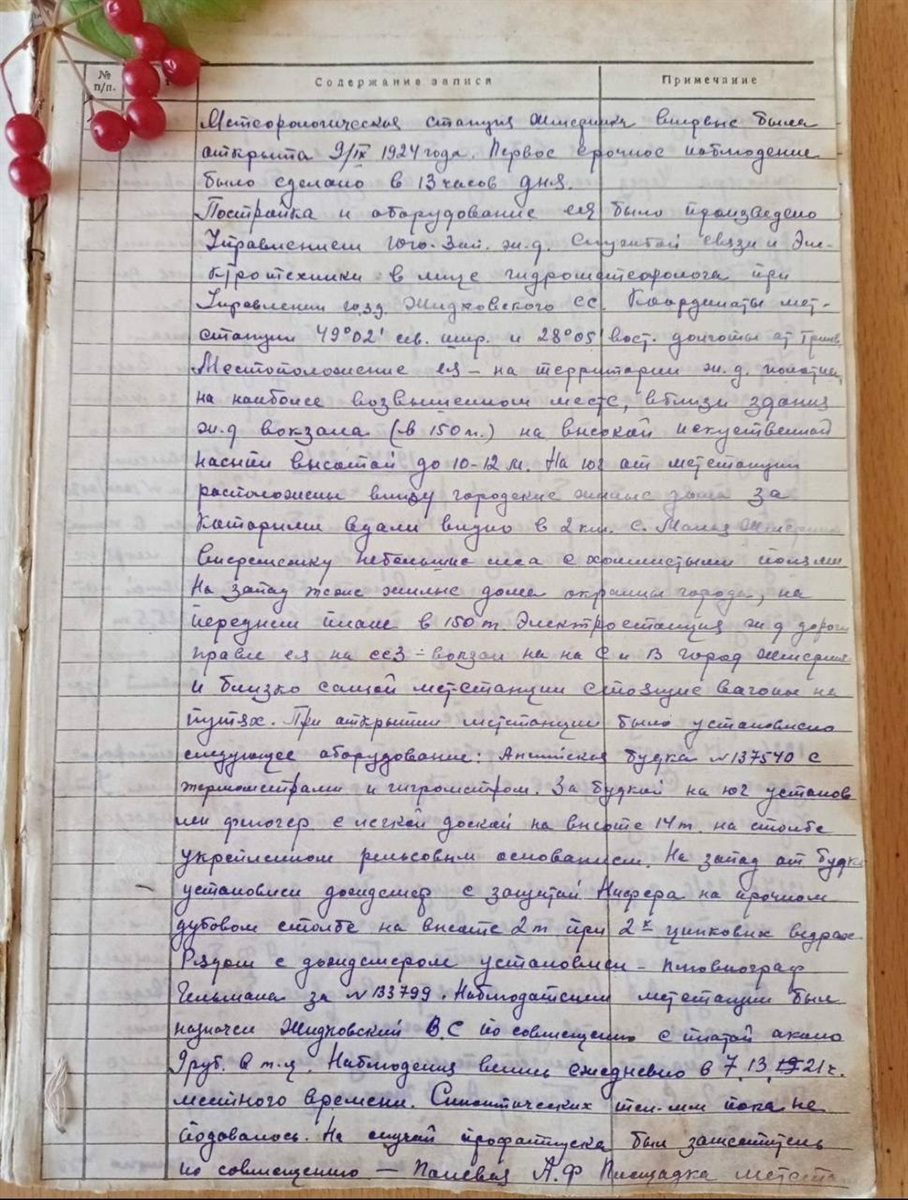 № п/п. Содержание записи Примечание
Метеорологическая станция Жмеринка впервые была
открыта 9/IX 1924 года. Первое срочное наблюдение
было сделано в 13 часов дня.
Постройка и оборудование ея было произведено
Управлением Юго-Зап. ж.д. службой связи и Эле-
ктротехники в лице гидрометеоролога при
Управлении Жидковского СС. Координаты мет-
станции 49°02' сев. шир. и 28°05' вост. долготы от Гринв.
Местоположение ея – на территории ж.д.
на наиболее возвышенном месте, вблизи здания
ж.д вокзала (в 150 m.) на высокой искуственной
насыпи высотой до 10-12 м. На юг от метстанции
расположены внизу городские жилые дома за
которыми вдали видно в 2 км. с. Малая Жмеринка
вперемежку небольшие леса с холмистыми полями
На запад тоже жилые дома окраины города, на
переднем плане в 150 m Электростанция ж д дороги
правее ея на ссз – вокзал на на С и В город Жмеринка
и близко самой метстанции стоящие вагоны на
путях. При открытии метстанции было установлено
следующее оборудование: Английская будка №137540 с
термометрами и гигрометром. За будкой на юг установ
лен флюгер с легкой доской на высоте 14 m. на столбе
укрепленном рельсовым основанием. На запад от будки
установлен дождемер с защитой Нифера на прочном
дубовом столбе на высоте 2 m при 2х цинковых ведрах.
Рядом с дождемером установлен – плювиограф
Гельмана за №133799. Наблюдателем метстанции был
назначен Жидковский В.С по совмещению с платой около
9 руб. в м-ц. Наблюдения велись ежедневно в 7, 13, 21 ч.
местного времени. Синоптических тел-мм пока не
подавалось. На случай профотпуска был заместитель
по совмещению — Полевая А.Ф Площадка метеост